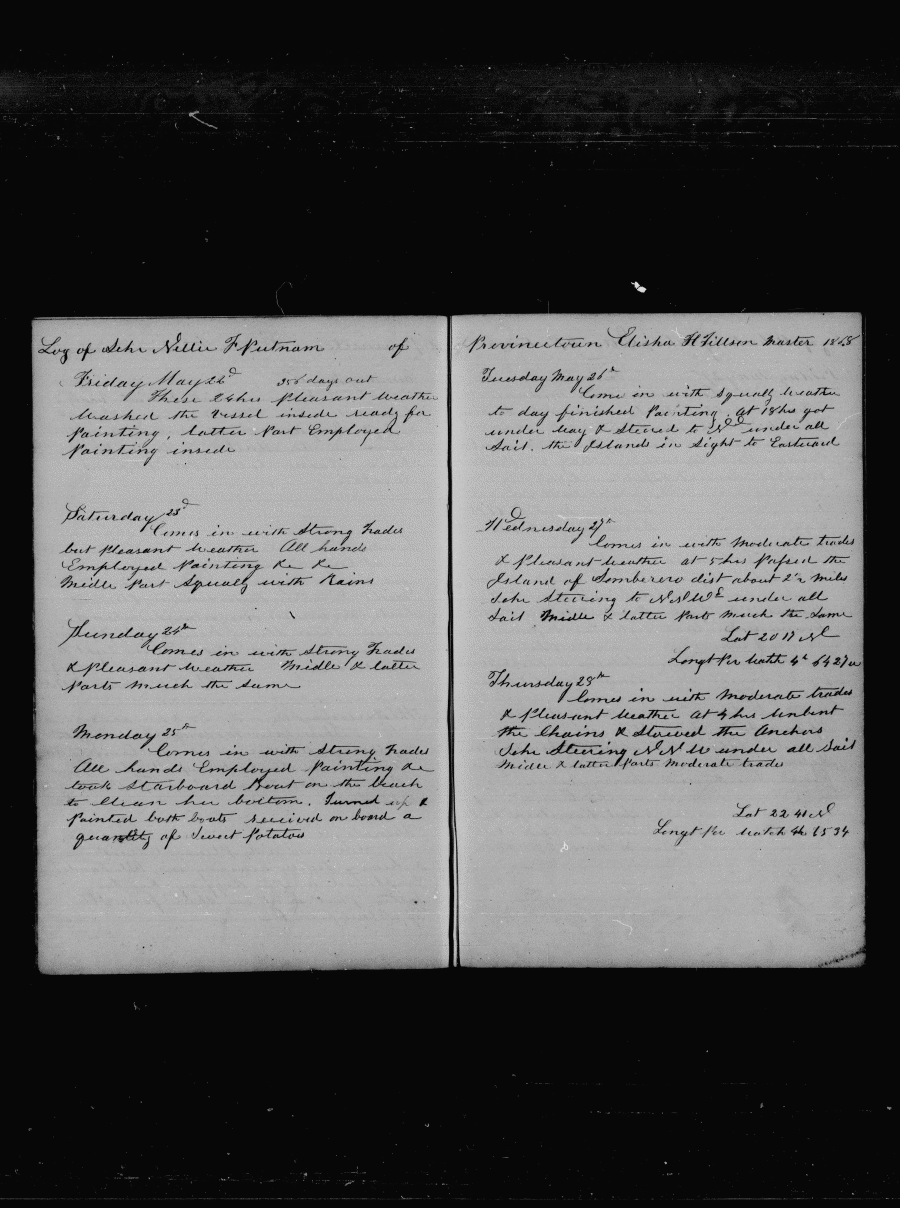 Log of Schr Nellie F Putnam of
Friday May 22d 356 days out
These 24 hrs Pleasant Weather
Washed the Vessel inside ready for
Painting, latter Part Employed
Painting inside
Saturday 23d
Comes in with Strong Trades
but Pleasant Weather All hands
Employed Painting &c &c
Midle Part Squaly with Rains
Sunday 24th
Comes in with Strong Trades
& Pleasant Weather Midle & latter
Parts Much the Same
Monday 25th
Comes in with Strong Trades
All hands Employed Painting &c
took Starboard Boat on the beach
to Clean her bottom. Turned up &
Painted both boats received on board a
quantity of Sweet Potatoes
Provincetown Elisha H Tillson Master 1868
Tuesday May 26th
Come in with Squaly Weather
to day finished Painting. at 18 hrs got
under Way & Steered to Nd under all
Sail. the Islands in Sight to Eastward
Wednesday 27th
Comes in with Moderate trades
& Pleasant Weather at 5 hrs Passed the
Island of Sombrero dist about 2½ Miles
Schr Steering to N N W under all
Sail Midle & latter Parts Much the Same
Lat 20 17 N
Longt Per Watch 4h 64 27 w
Thursday 28th
Comes in with Moderate trades
& Pleasant Weather At 4 hrs Unbent
the Chains & Stowed the Anchors
Schr Steering N N W under all Sail
Midle & latter Parts Moderate trades
Lat 22 41 N
Longt Per Watch 4h 65 34